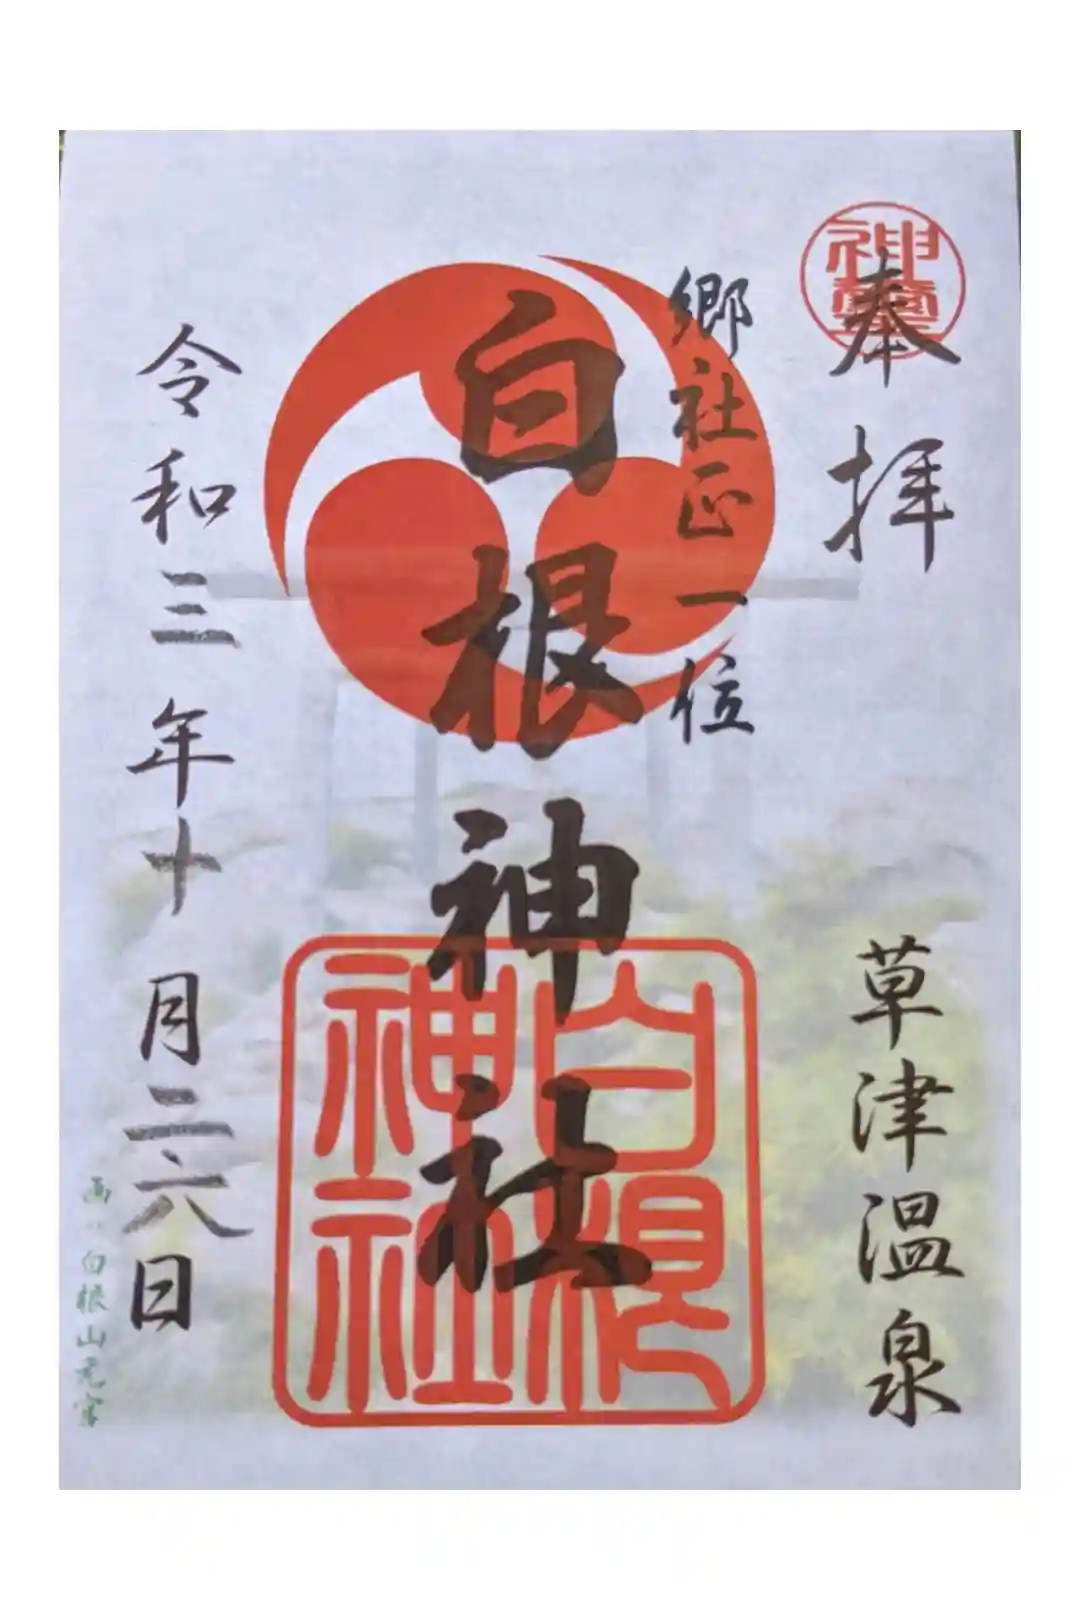 奉拝
神璽
草津温泉
郷社正一位
白根神社
白根神社
令和三年十月二六日
画・白根山元宮